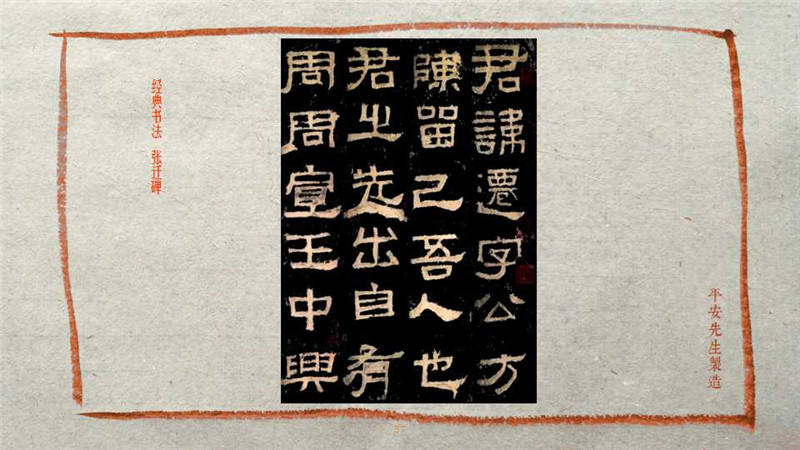 经典书法 张迁碑
君諱遷字公方
陳留己吾人也
君之先出自有
周周宣王中興
平安先生製造